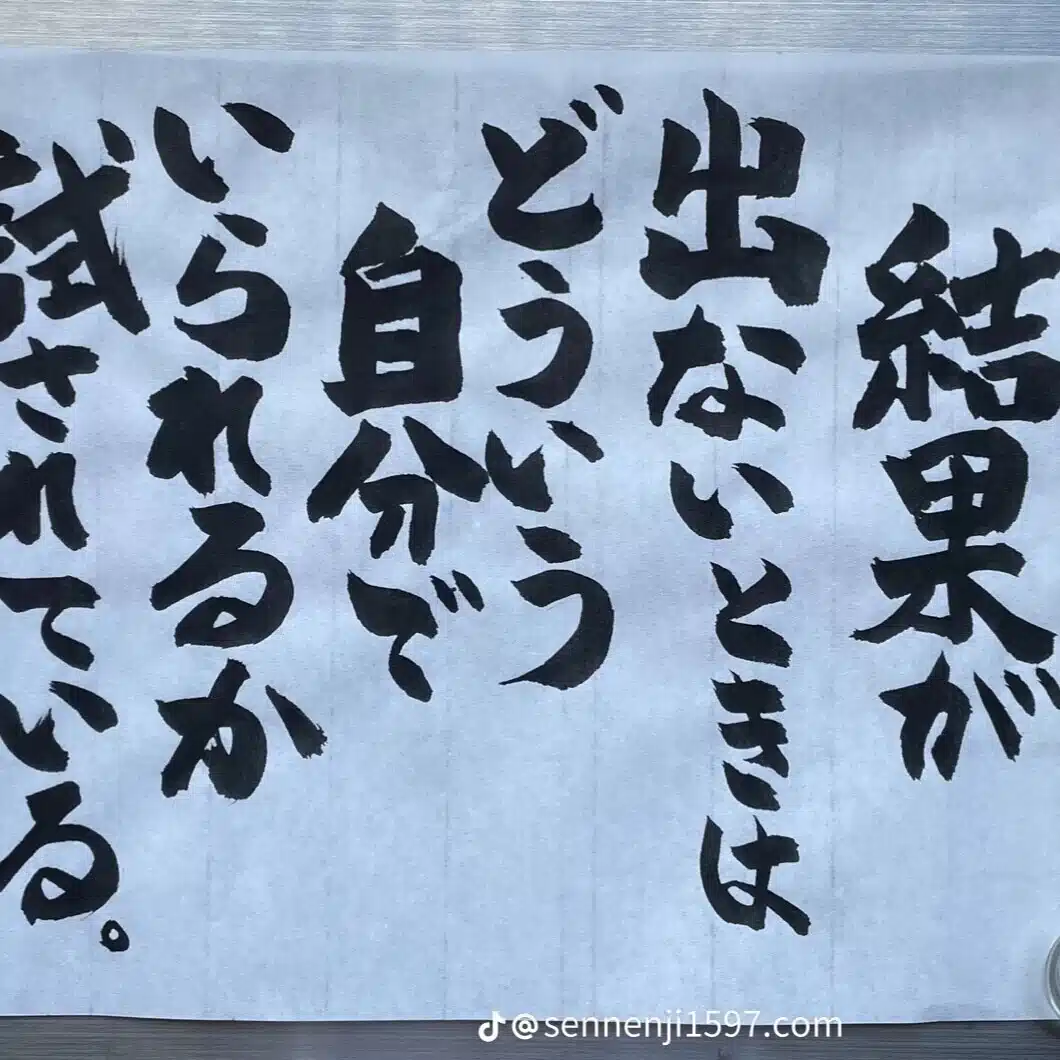 結果が
出ないときは
どういう
自分で
いられるか
試されている。
@sennenji1597.com